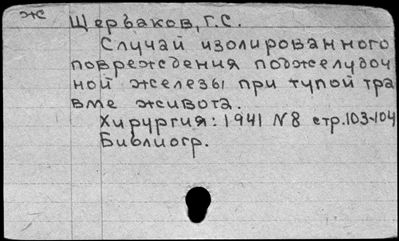 ж
Щербаков, Г.С.
Случай изолированного
повреждения поджелудоч
ной железы при тупой тра
вме живота.
Хирургия: 1941 №8 стр. 103-104
Библиогр.